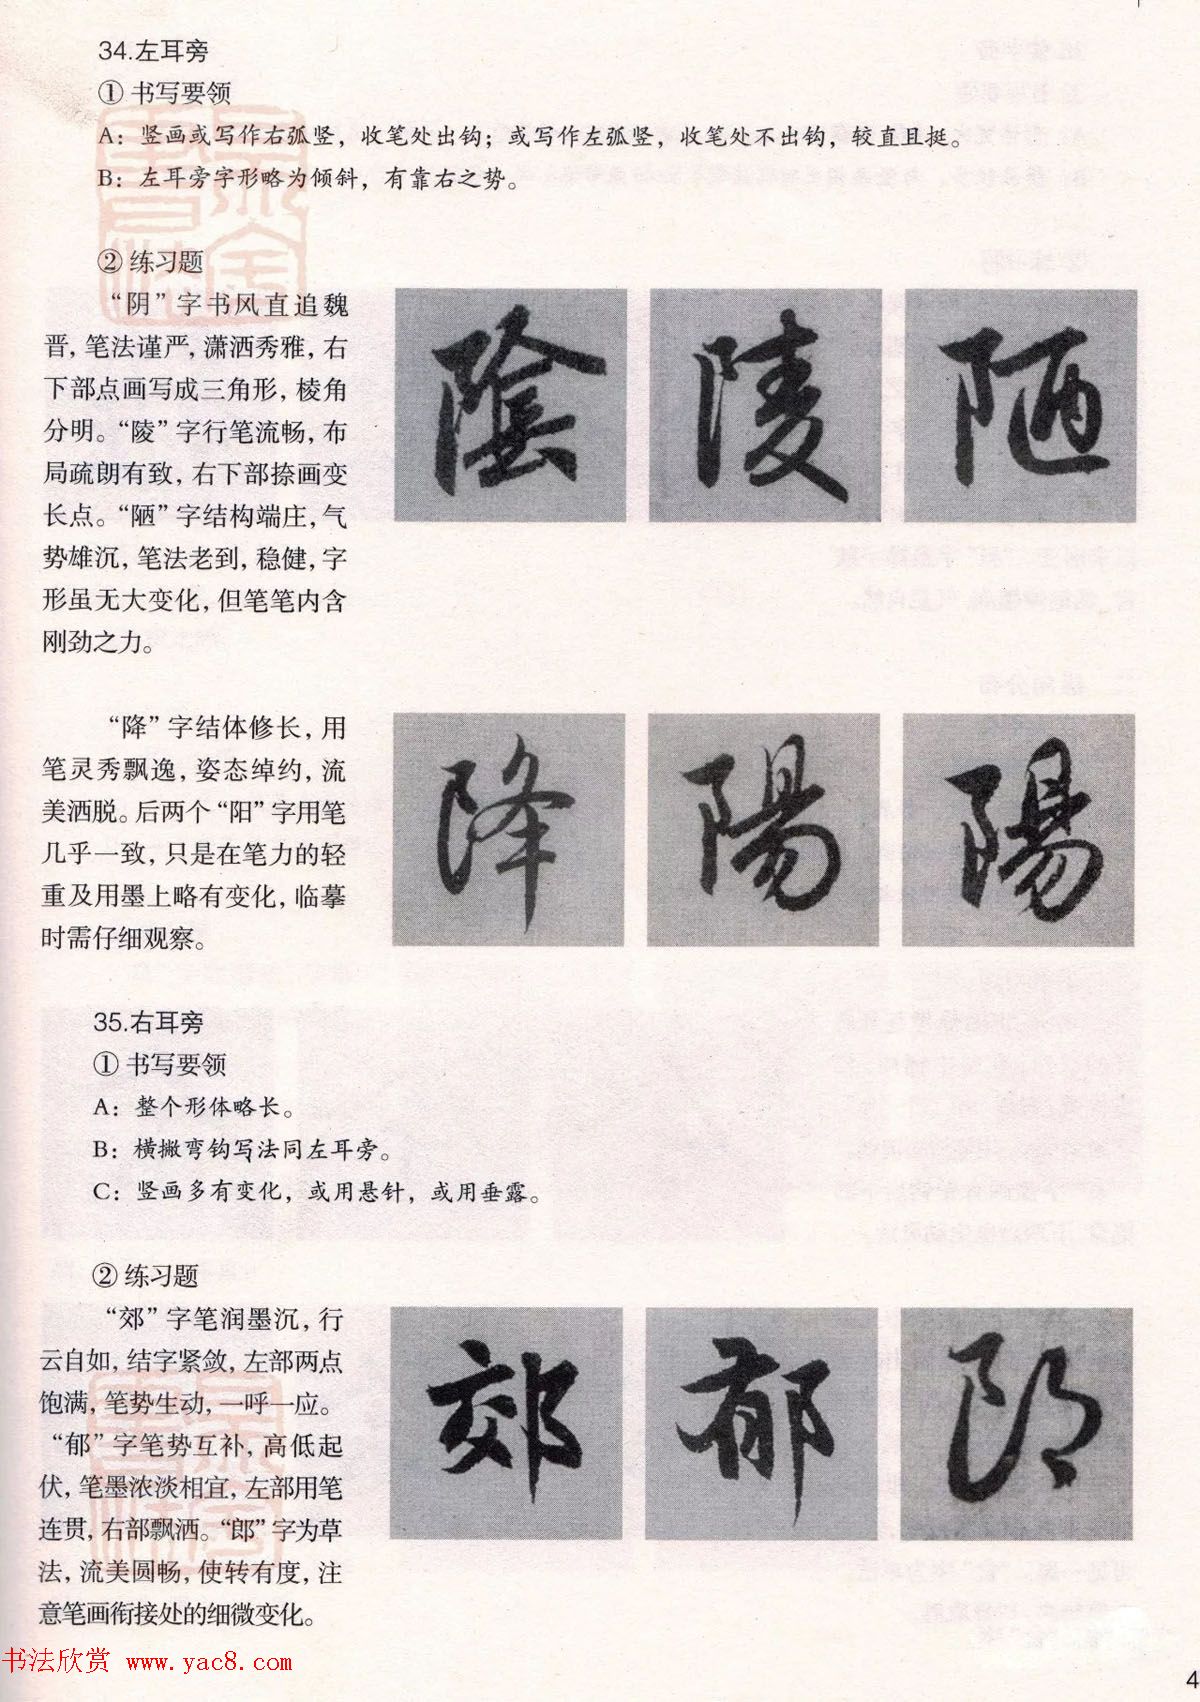 34.左耳旁
① 书写要领
A：竖画或写作右弧竖，收笔处出钩；或写作左弧竖，收笔处不出钩，较直且挺。
B：左耳旁字形略为倾斜，有靠右之势。
② 练习题
“阴”字书风直追魏
晋，笔法谨严，潇洒秀雅，右
下部点画写成三角形，棱角
分明。“陵”字行笔流畅，布
局疏朗有致，右下部捺画变
长点。“陋”字结构端庄，气
势雄沉，笔法老到，稳健，字
形虽无大变化，但笔笔内含
刚劲之力。
陰 陵 陋
“降”字结体修长，用
笔灵秀飘逸，姿态绰约，流
美洒脱。后两个“阳”字用笔
几乎一致，只是在笔力的轻
重及用墨上略有变化，临摹
时需仔细观察。
降 陽 陽
35.右耳旁
① 书写要领
A：整个形体略长。
B：横撇弯钩写法同左耳旁。
C：竖画多有变化，或用悬针，或用垂露。
② 练习题
“郊”字笔润墨沉，行
云自如，结字紧敛，左部两点
饱满，笔势生动，一呼一应。
“郁”字笔势互补，高低起
伏，笔墨浓淡相宜，左部用笔
连贯，右部飘洒。“郎”字为草
法，流美圆畅，使转有度，注
意笔画衔接处的细微变化。
郊 郁 郎
书法欣赏 www.yac8.com
4